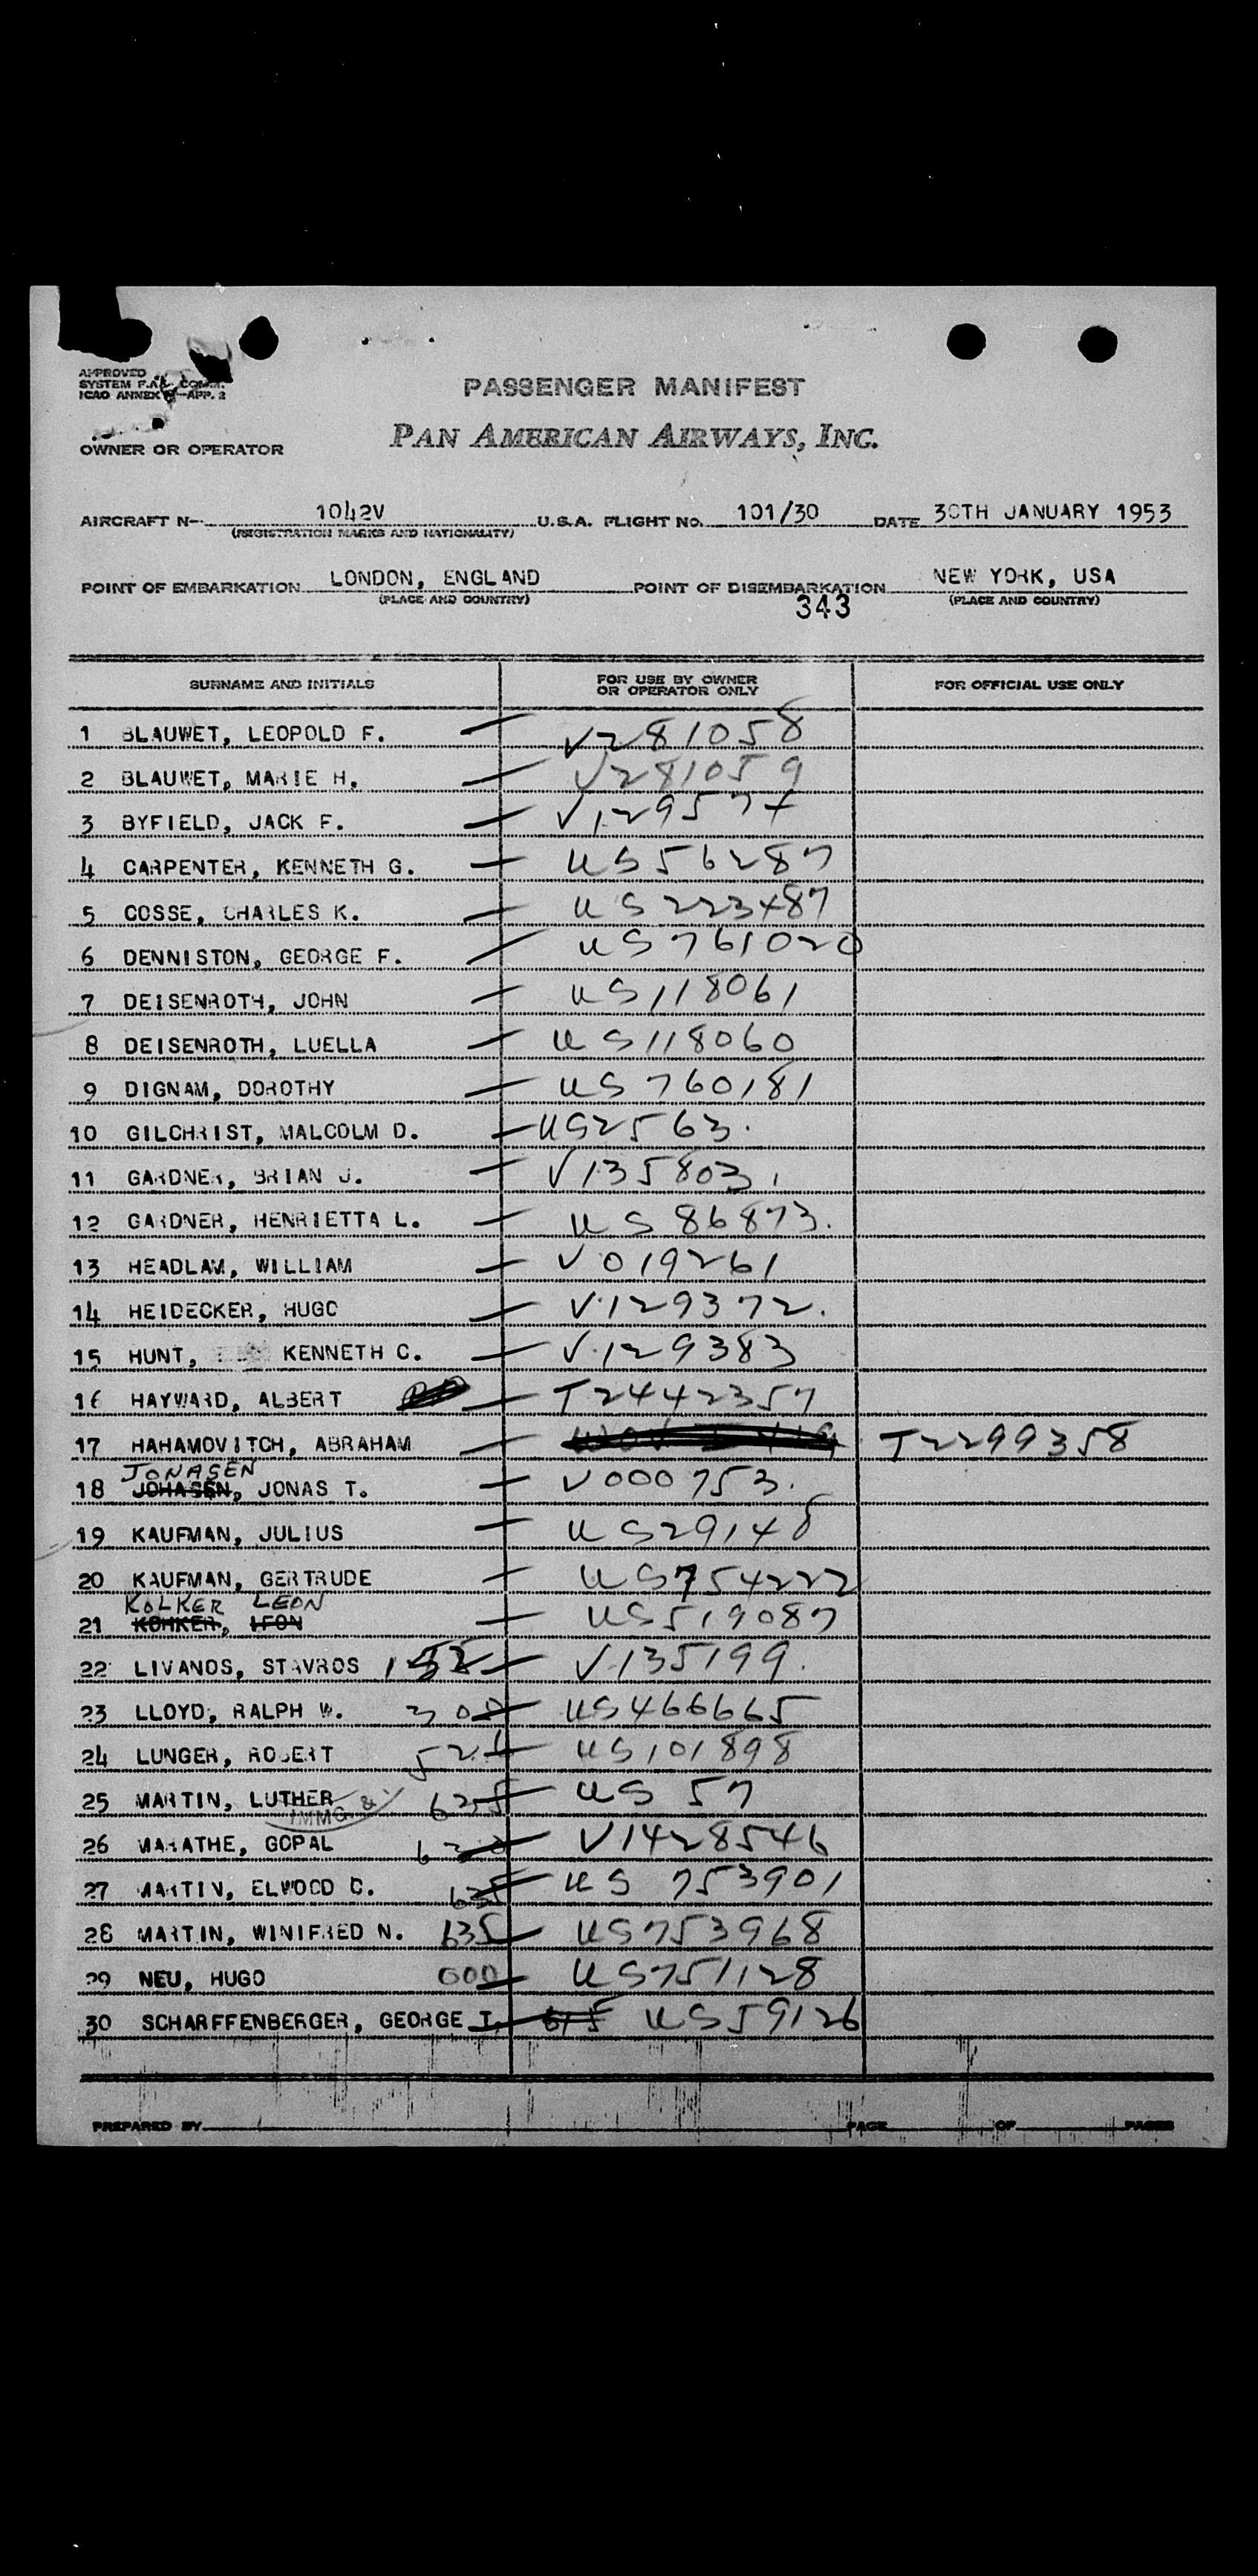 APPROVED
SYSTEM F.A.L. COMM.
ICAO ANNEX 9—APP. 2
PASSENGER MANIFEST
OWNER OR OPERATOR PAN AMERICAN AIRWAYS, INC.
AIRCRAFT N- 1042V U.S.A. FLIGHT NO. 101/30 DATE 30TH JANUARY 1953
(REGISTRATION MARKS AND NATIONALITY)
POINT OF EMBARKATION LONDON, ENGLAND POINT OF DISEMBARKATION NEW YORK, USA
(PLACE AND COUNTRY) 343 (PLACE AND COUNTRY)
SURNAME AND INITIALS FOR USE BY OWNER OR OPERATOR ONLY FOR OFFICIAL USE ONLY
1 BLAUWET, LEOPOLD F. — V281058
2 BLAUWET, MARIE H. — V281059
3 BYFIELD, JACK F. — V129574
4 CARPENTER, KENNETH G. — US56287
5 COSSE, CHARLES K. — US223487
6 DENNISTON, GEORGE F. — US761020
7 DEISENROTH, JOHN — US118061
8 DEISENROTH, LUELLA — US118060
9 DIGNAM, DOROTHY — US760181
10 GILCHRIST, MALCOLM D. — US2563.
11 GARDNER, BRIAN J. — V135803.
12 GARDNER, HENRIETTA L. — US86873.
13 HEADLAM, WILLIAM — V019261
14 HEIDECKER, HUGO — V.129372.
15 HUNT, KENNETH C. — V.129383
16 HAYWARD, ALBERT — T2442357
17 HAHAMOVITCH, ABRAHAM — T2299358
JONASEN
18 JOHASEN, JONAS T. — V000753.
19 KAUFMAN, JULIUS — US29148
20 KAUFMAN, GERTRUDE — US754222
KOLKER LEON
21 KOHKER, LEON — US519087
22 LIVANOS, STAVROS — V135199.
23 LLOYD, RALPH W. 300 — US466665
24 LUNGER, ROBERT 521 — US101898
25 MARTIN, LUTHER 635 — US 57
IMMG. &
26 MARATHE, GOPAL 630 — V1428546
27 MARTIN, ELWOOD C. 635 — US 753901
28 MARTIN, WINIFRED N. 635 — US753968
29 NEU, HUGO 600 — US751128
30 SCHARFFENBERGER, GEORGE T. — 615 US59126
PREPARED BY PAGE OF PAGES